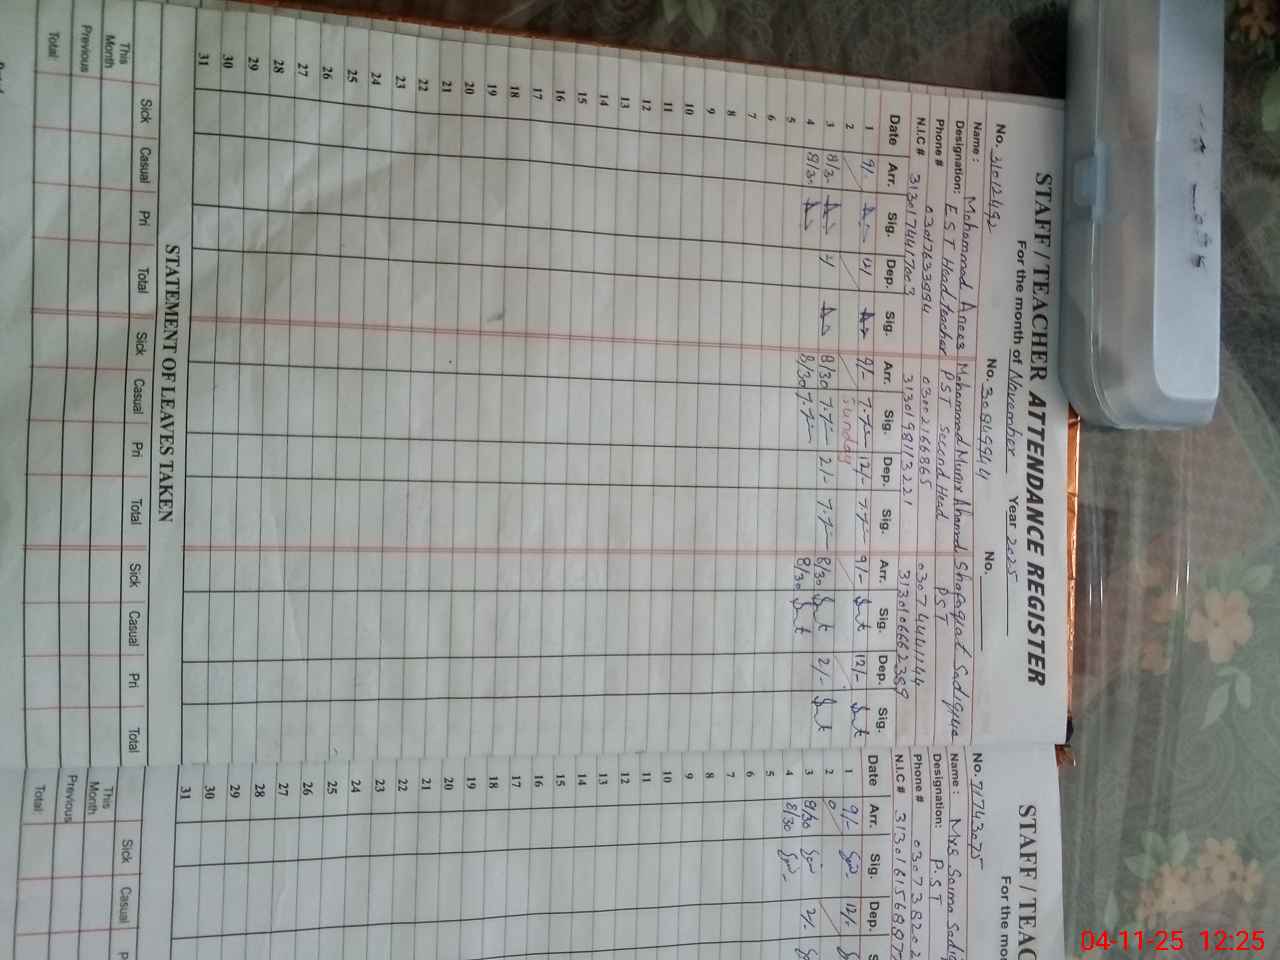 STAFF / TEACHER ATTENDANCE REGISTER
For the month of November Year 2025
No. 31012492 No. 30849944 No.
Name: Mohammad Anees Mohammad Munir Ahamd Shafaqat Sadique
Designation: E.S.T Head teacher PST Second Head PST
Phone # 03017633994 03002166865 03074441144
N.I.C # 3130174417003 3130198113221 3130106662389
Date Arr. Sig. Dep. Sig. Arr. Sig. Dep. Sig. Arr. Sig. Dep. Sig.
1 9/- 12/ 9/- 12/- 9/- 12/-
2 Sunday
3 8/30 2/ 8/30 2/- 8/30 2/-
4 8/30 8/30 8/30
5
6
7
8
9
10
11
12
13
14
15
16
17
18
19
20
21
22
23
24
25
26
27
28
29
30
31
STATEMENT OF LEAVES TAKEN
Sick Casual Pri Total Sick Casual Pri Total Sick Casual Pri Total
This Month
Previous
Total
STAFF / TEAC
For the mo
No. 71743075
Name: Mrs Saima Sadiq
Designation: P.S.T
Phone # 03073820
N.I.C # 313016156887
Date Arr. Sig. Dep. S
1 9/- 12/-
2
3 8/30 2/-
4 8/30
5
6
7
8
9
10
11
12
13
14
15
16
17
18
19
20
21
22
23
24
25
26
27
28
29
30
31
Sick Casual P
This Month
Previous
Total
04-11-25 12:25